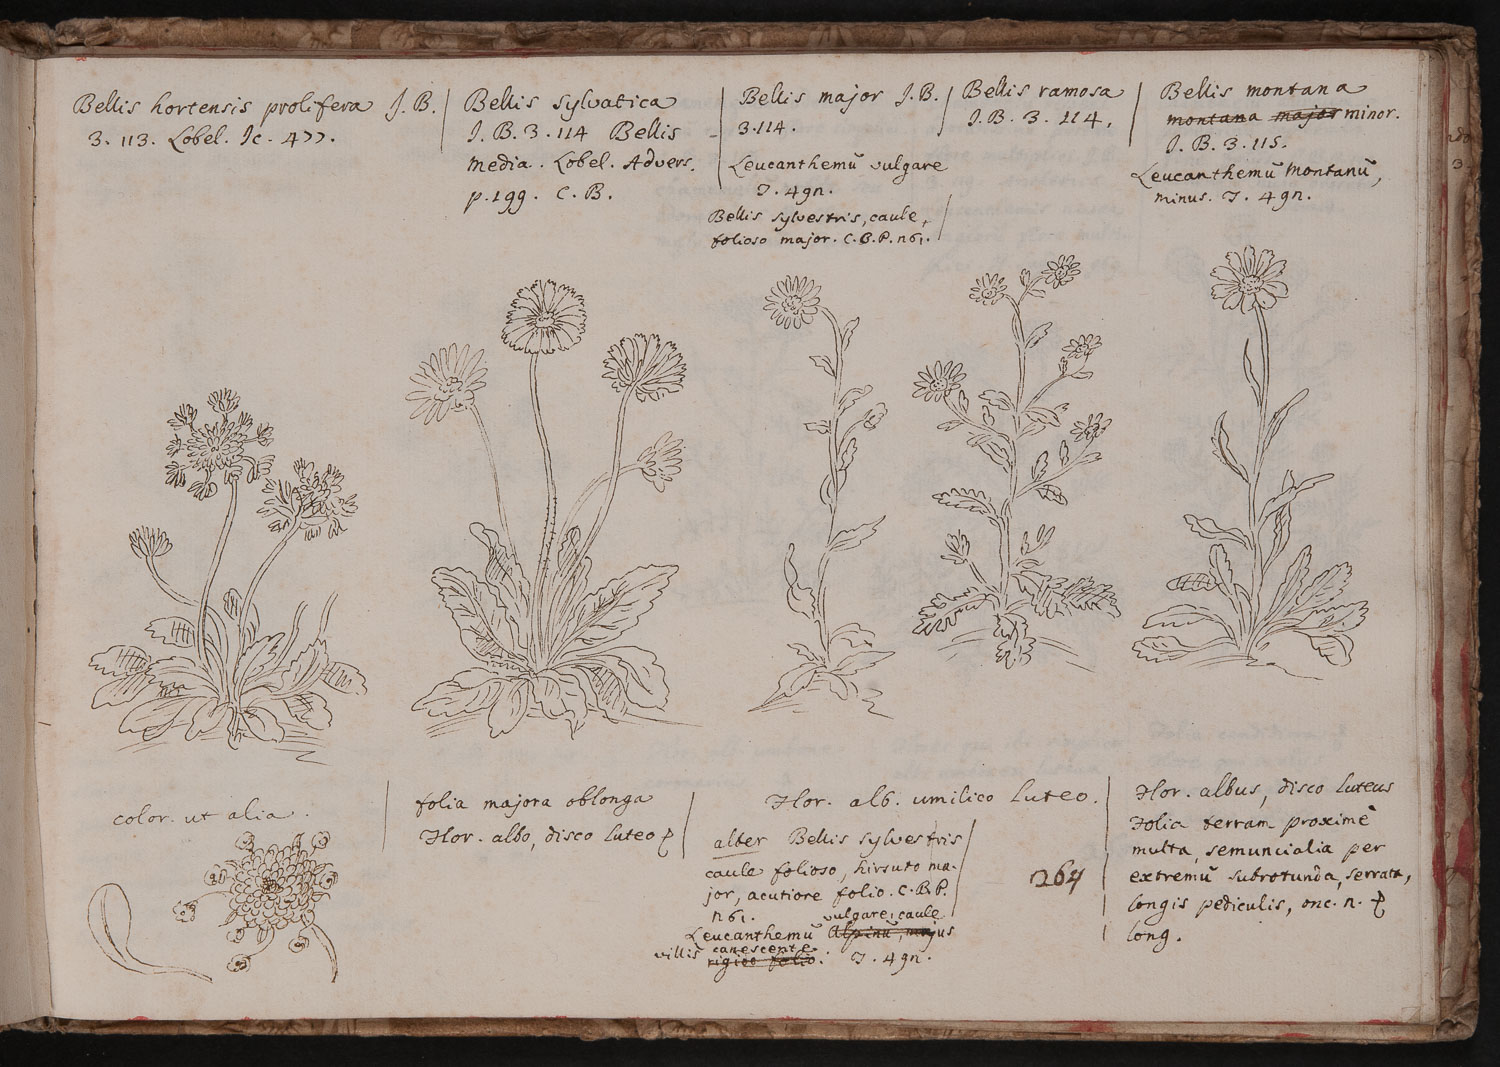 Bellis hortensis prolifera J.B.
3. 113. Lobel. Ic. 477.
Bellis sylvatica
J.B. 3. 114 Bellis
media. Lobel. Advers.
p. 199. C.B.
Bellis major J.B.
3.114.
Leucanthemũ vulgare
T. 492.
Bellis sylvestris, caule,
folioso major. C.B.P. 261.
Bellis ramosa
J.B. 3. 114.
Bellis montana
montana major minor.
J.B. 3. 115.
Leucanthemũ Montanũ,
minus. T. 492.
color. ut alia.
folia majora oblonga
Flor. albo, disco luteo
Flor. alb. umilico luteo.
alter Bellis sylvestris
caule folioso, hirsuto ma-
jor, acutiore folio. C.B.P.
261.
vulgare, caule
Leucanthemũ Alpinũ, majus
villis canescente
rigido folio. T. 492.
264
Flor. albus, disco luteus
Folia terram proximè
multa, semuncialia per
extremũ subrotunda, serrata,
longis pediculis, onc. 2.
long.